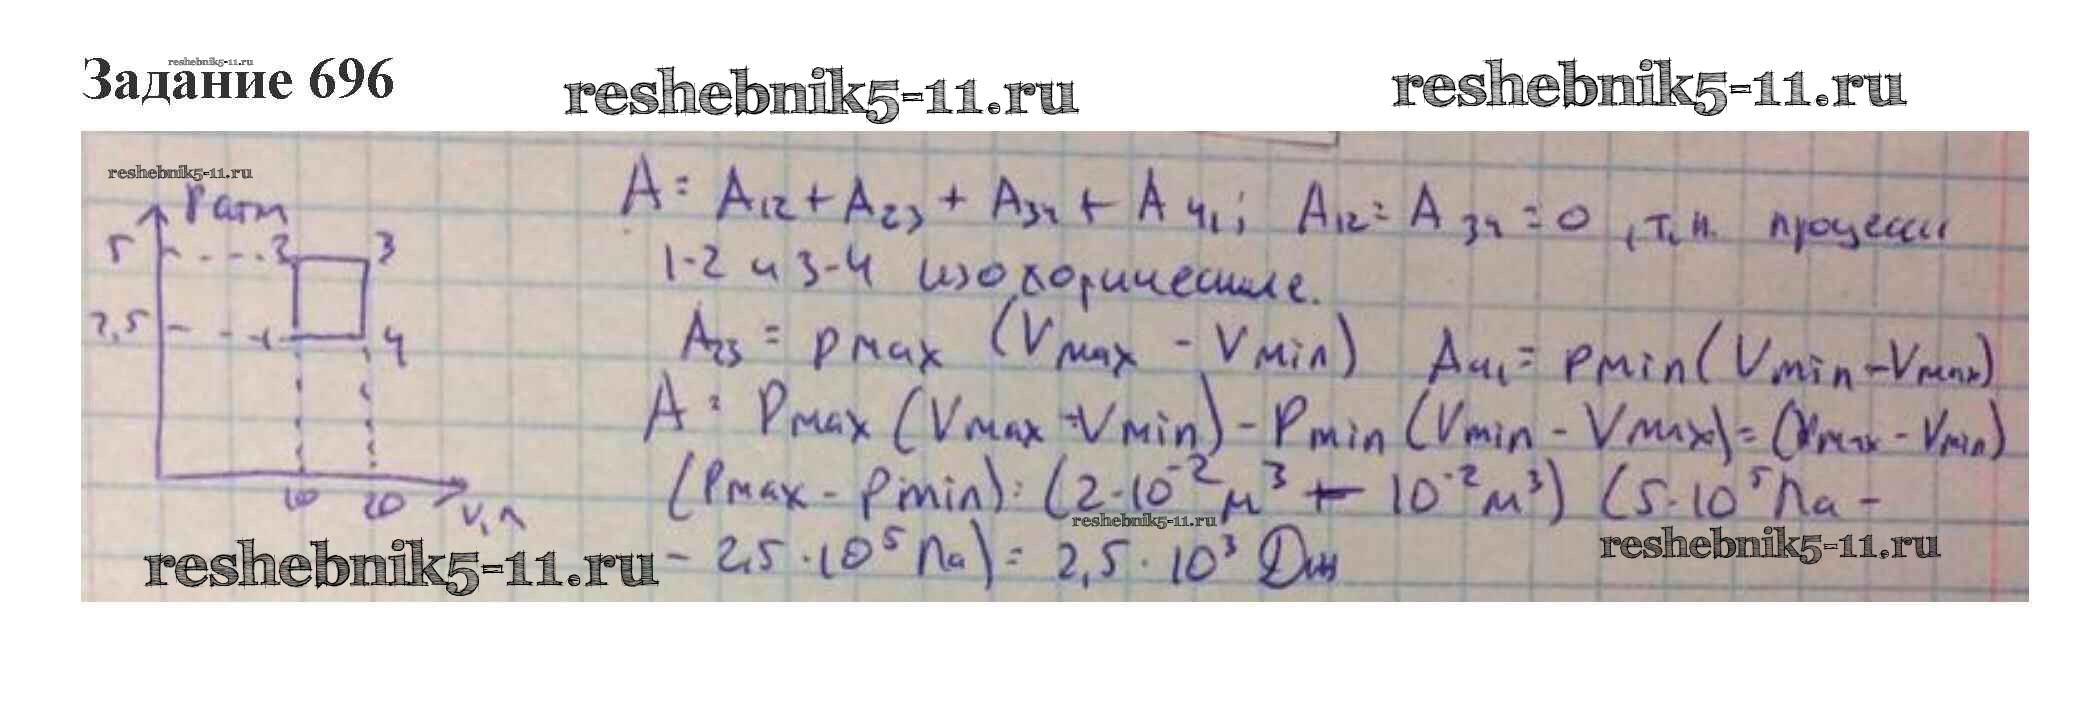 Задание 696
reshebnik5-11.ru
reshebnik5-11.ru
reshebnik5-11.ru
reshebnik5-11.ru
P атм
5
2
3
2,5
1
4
10
20
V, л
A = A12 + A23 + A34 + A41; A12 = A34 = 0, т.к. процессы
1-2 и 3-4 изохорические.
A23 = pmax (Vmax - Vmin) A41 = pmin (Vmin - Vmax)
A = Pmax (Vmax - Vmin) - Pmin (Vmin - Vmax) = (Vmax - Vmin)
(Pmax - Pmin) = (2·10⁻² м³ - 10⁻² м³) (5·10⁵ Па -
- 2,5·10⁵ Па) = 2,5·10³ Дж
reshebnik5-11.ru
reshebnik5-11.ru
reshebnik5-11.ru